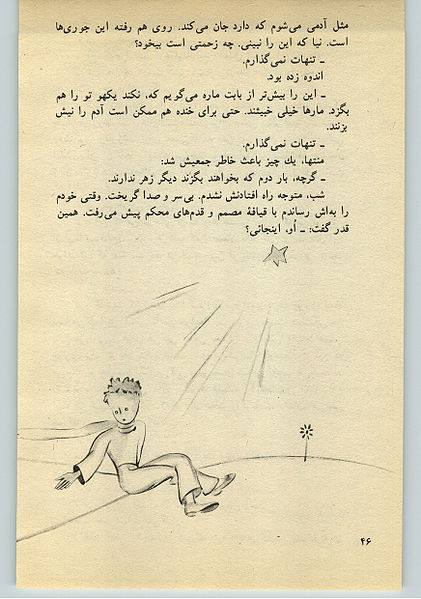 مثل آدمی می‌شوم که دارد جان می‌کند. روی هم رفته این جوری‌ها
است. نیا که این را نبینی. چه زحمتی است بیخود؟
ـ تنهات نمی‌گذارم.
اندوه زده بود.
ـ این را بیش‌تر از بابت ماره می‌گویم که، نکند یکهو تو را هم
بگزد. مارها خیلی خبیثند. حتی برای خنده هم ممکن است آدم را نیش
بزنند.
ـ تنهات نمی‌گذارم.
منتها، یك چیز باعث خاطر جمعیش شد:
ـ گرچه، بار دوم که بخواهند بگزند دیگر زهر ندارند.
شب، متوجه راه افتادنش نشدم. بی‌سر و صدا گریخت. وقتی خودم
را به‌اش رساندم با قیافهٔ مصمم و قدم‌های محکم پیش می‌رفت. همین
قدر گفت: ـ اُو، اینجائی؟
۴۶